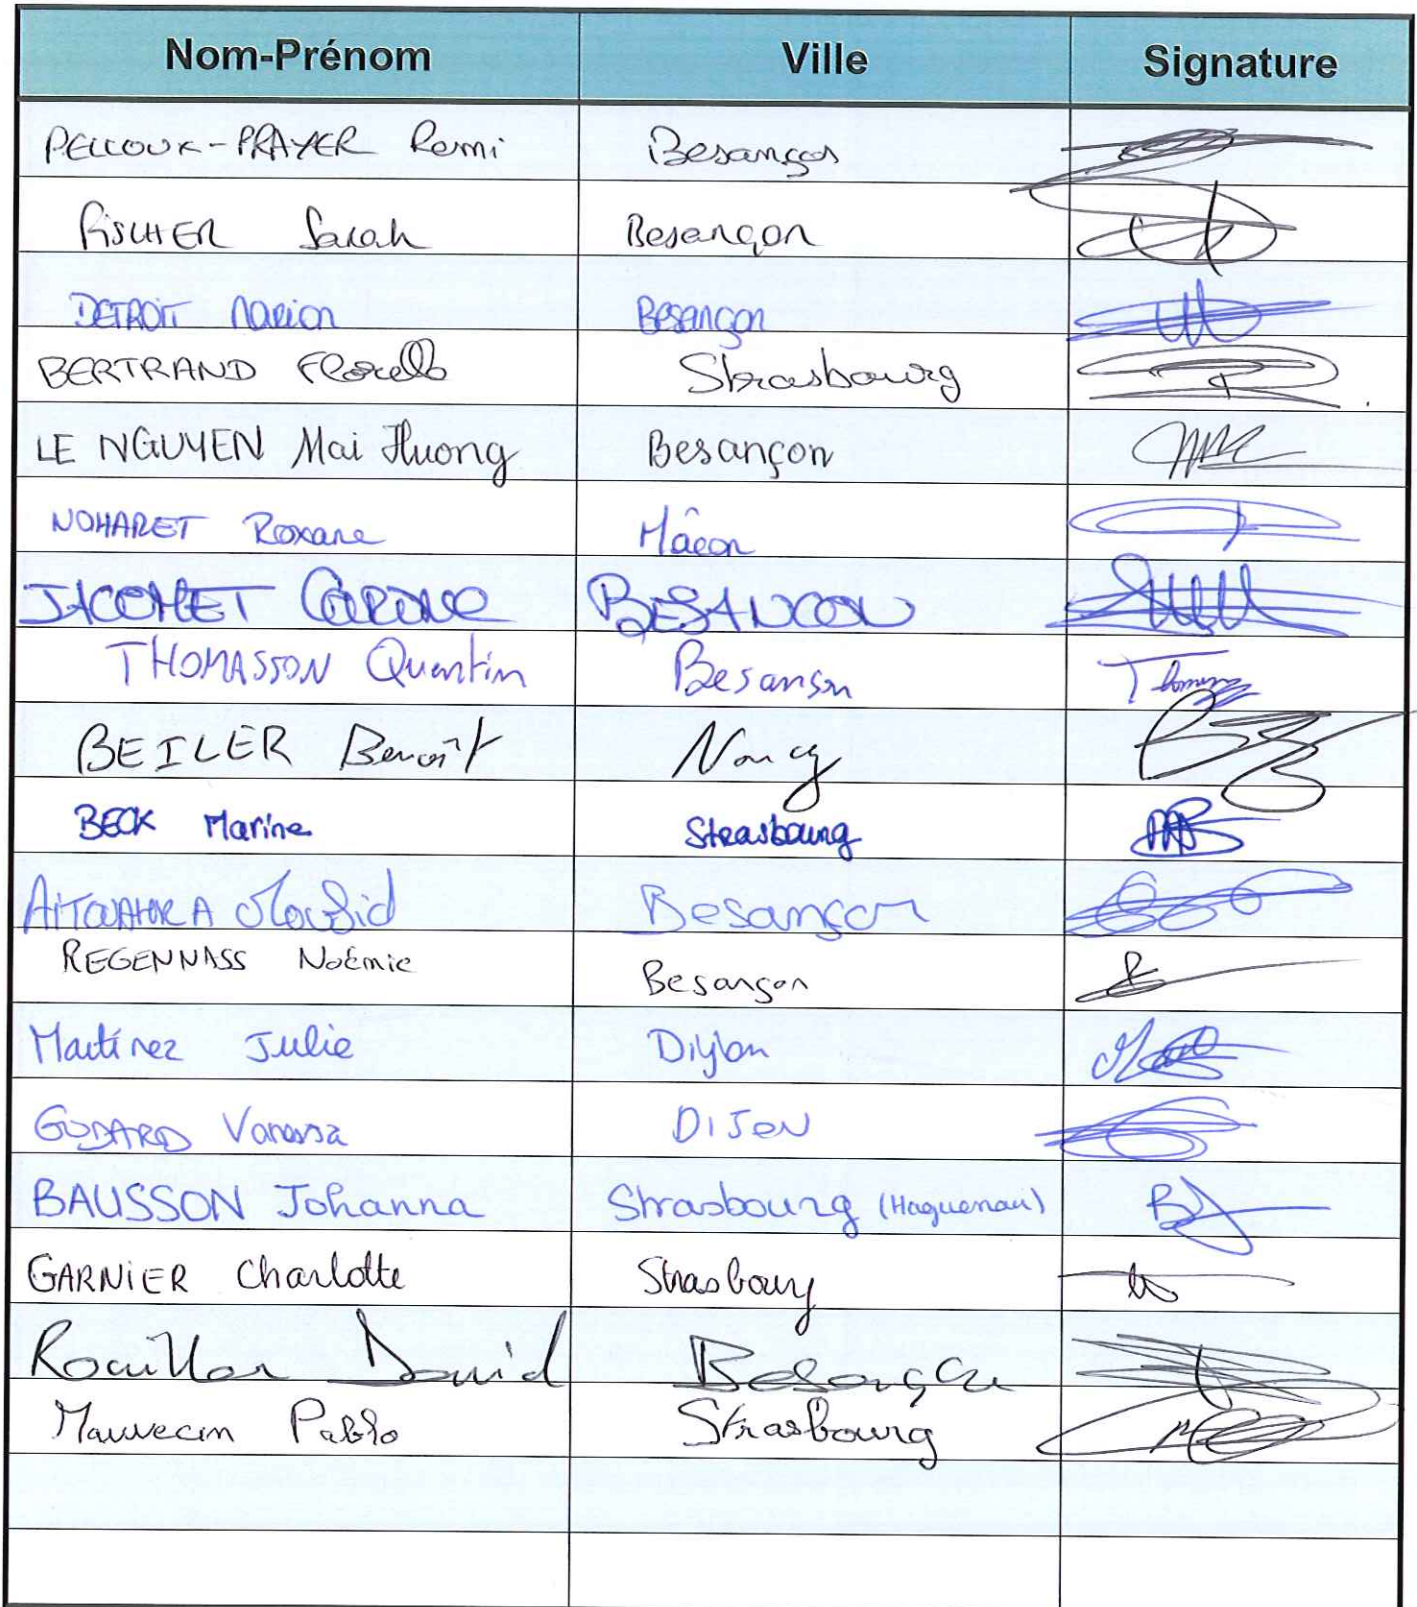 Nom-Prénom Ville Signature
PELLOUX-PRAYER Remi Besançon
FISCHER Sarah Besançon
DETROIT Marion Besançon
BERTRAND Strasbourg
LE NGUYEN Mai Huong Besançon
NOHARET Roxane Mâcon
JACOMET BESANCON
THOMASSON Quentin Besanson
BEILER Benoît Nancy
BECK Marine Strasbourg
Besançon
REGENNASS Noémie Besançon
Martínez Julie Dijon
GODARD Vanessa DIJON
BAUSSON Johanna Strasbourg (Haguenau)
GARNIER Charlotte Strasbourg
David Besançon
Pablo Strasbourg